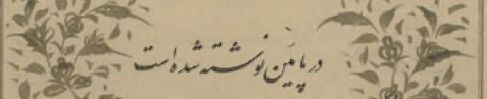 در پائین نوشته شده است